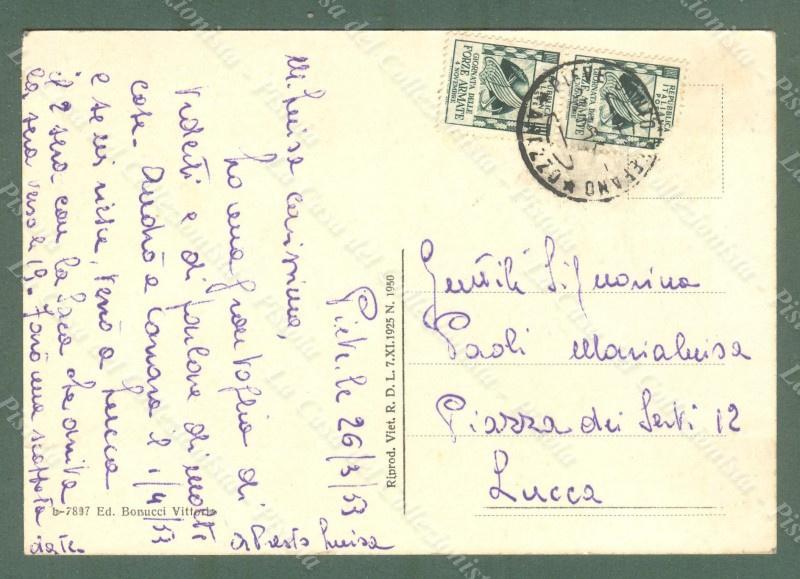 Piet. li 26/3/53
M. Luisa carissima,
ho una gran voglia di
vederti e di parlare di molte
cose. Andrò a Carrara il 1/4/53
e se mi riesce, verrò a Lucca
il 2 sera con la Saca che arriva
la sera verso le 19. Farò una scappata
da te.
A Presto Luisa
b-7897 Ed. Bonucci Vittorio
Riprod. Viet. R. D. L. 7.XI.1925 N. 1950
GIORNATA DELLE
FORZE ARMATE
4 NOVEMBRE
REPUBBLICA
ITALIANA
POSTE
GIORNATA DELLE
EFANO
Gentile Signorina
Paoli Marialuisa
Piazza dei Servi 12
Lucca
La Casa del Collezionista - Pistoia